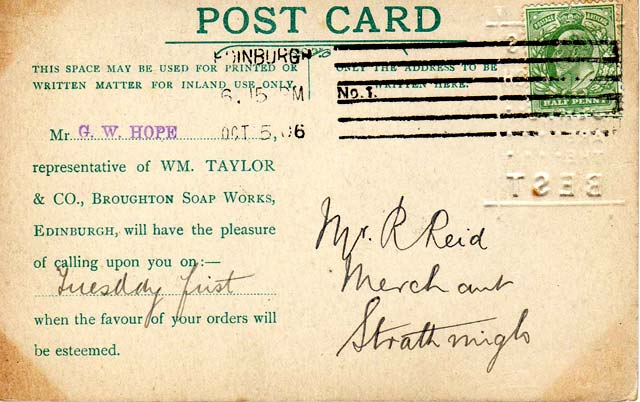 POST CARD
THIS SPACE MAY BE USED FOR PRINTED OR
WRITTEN MATTER FOR INLAND USE ONLY.
ONLY THE ADDRESS TO BE
WRITTEN HERE.
EDINBURGH
6.15 PM
OCT 5 06
No.1.
POSTAGE & REVENUE
HALF PENNY
BEST
Mr. G. W. HOPE,
representative of WM. TAYLOR
& CO., BROUGHTON SOAP WORKS,
EDINBURGH, will have the pleasure
of calling upon you on:—
Tuesday first
when the favour of your orders will
be esteemed.
Mr. R Reid
Merchant
Strathmiglo